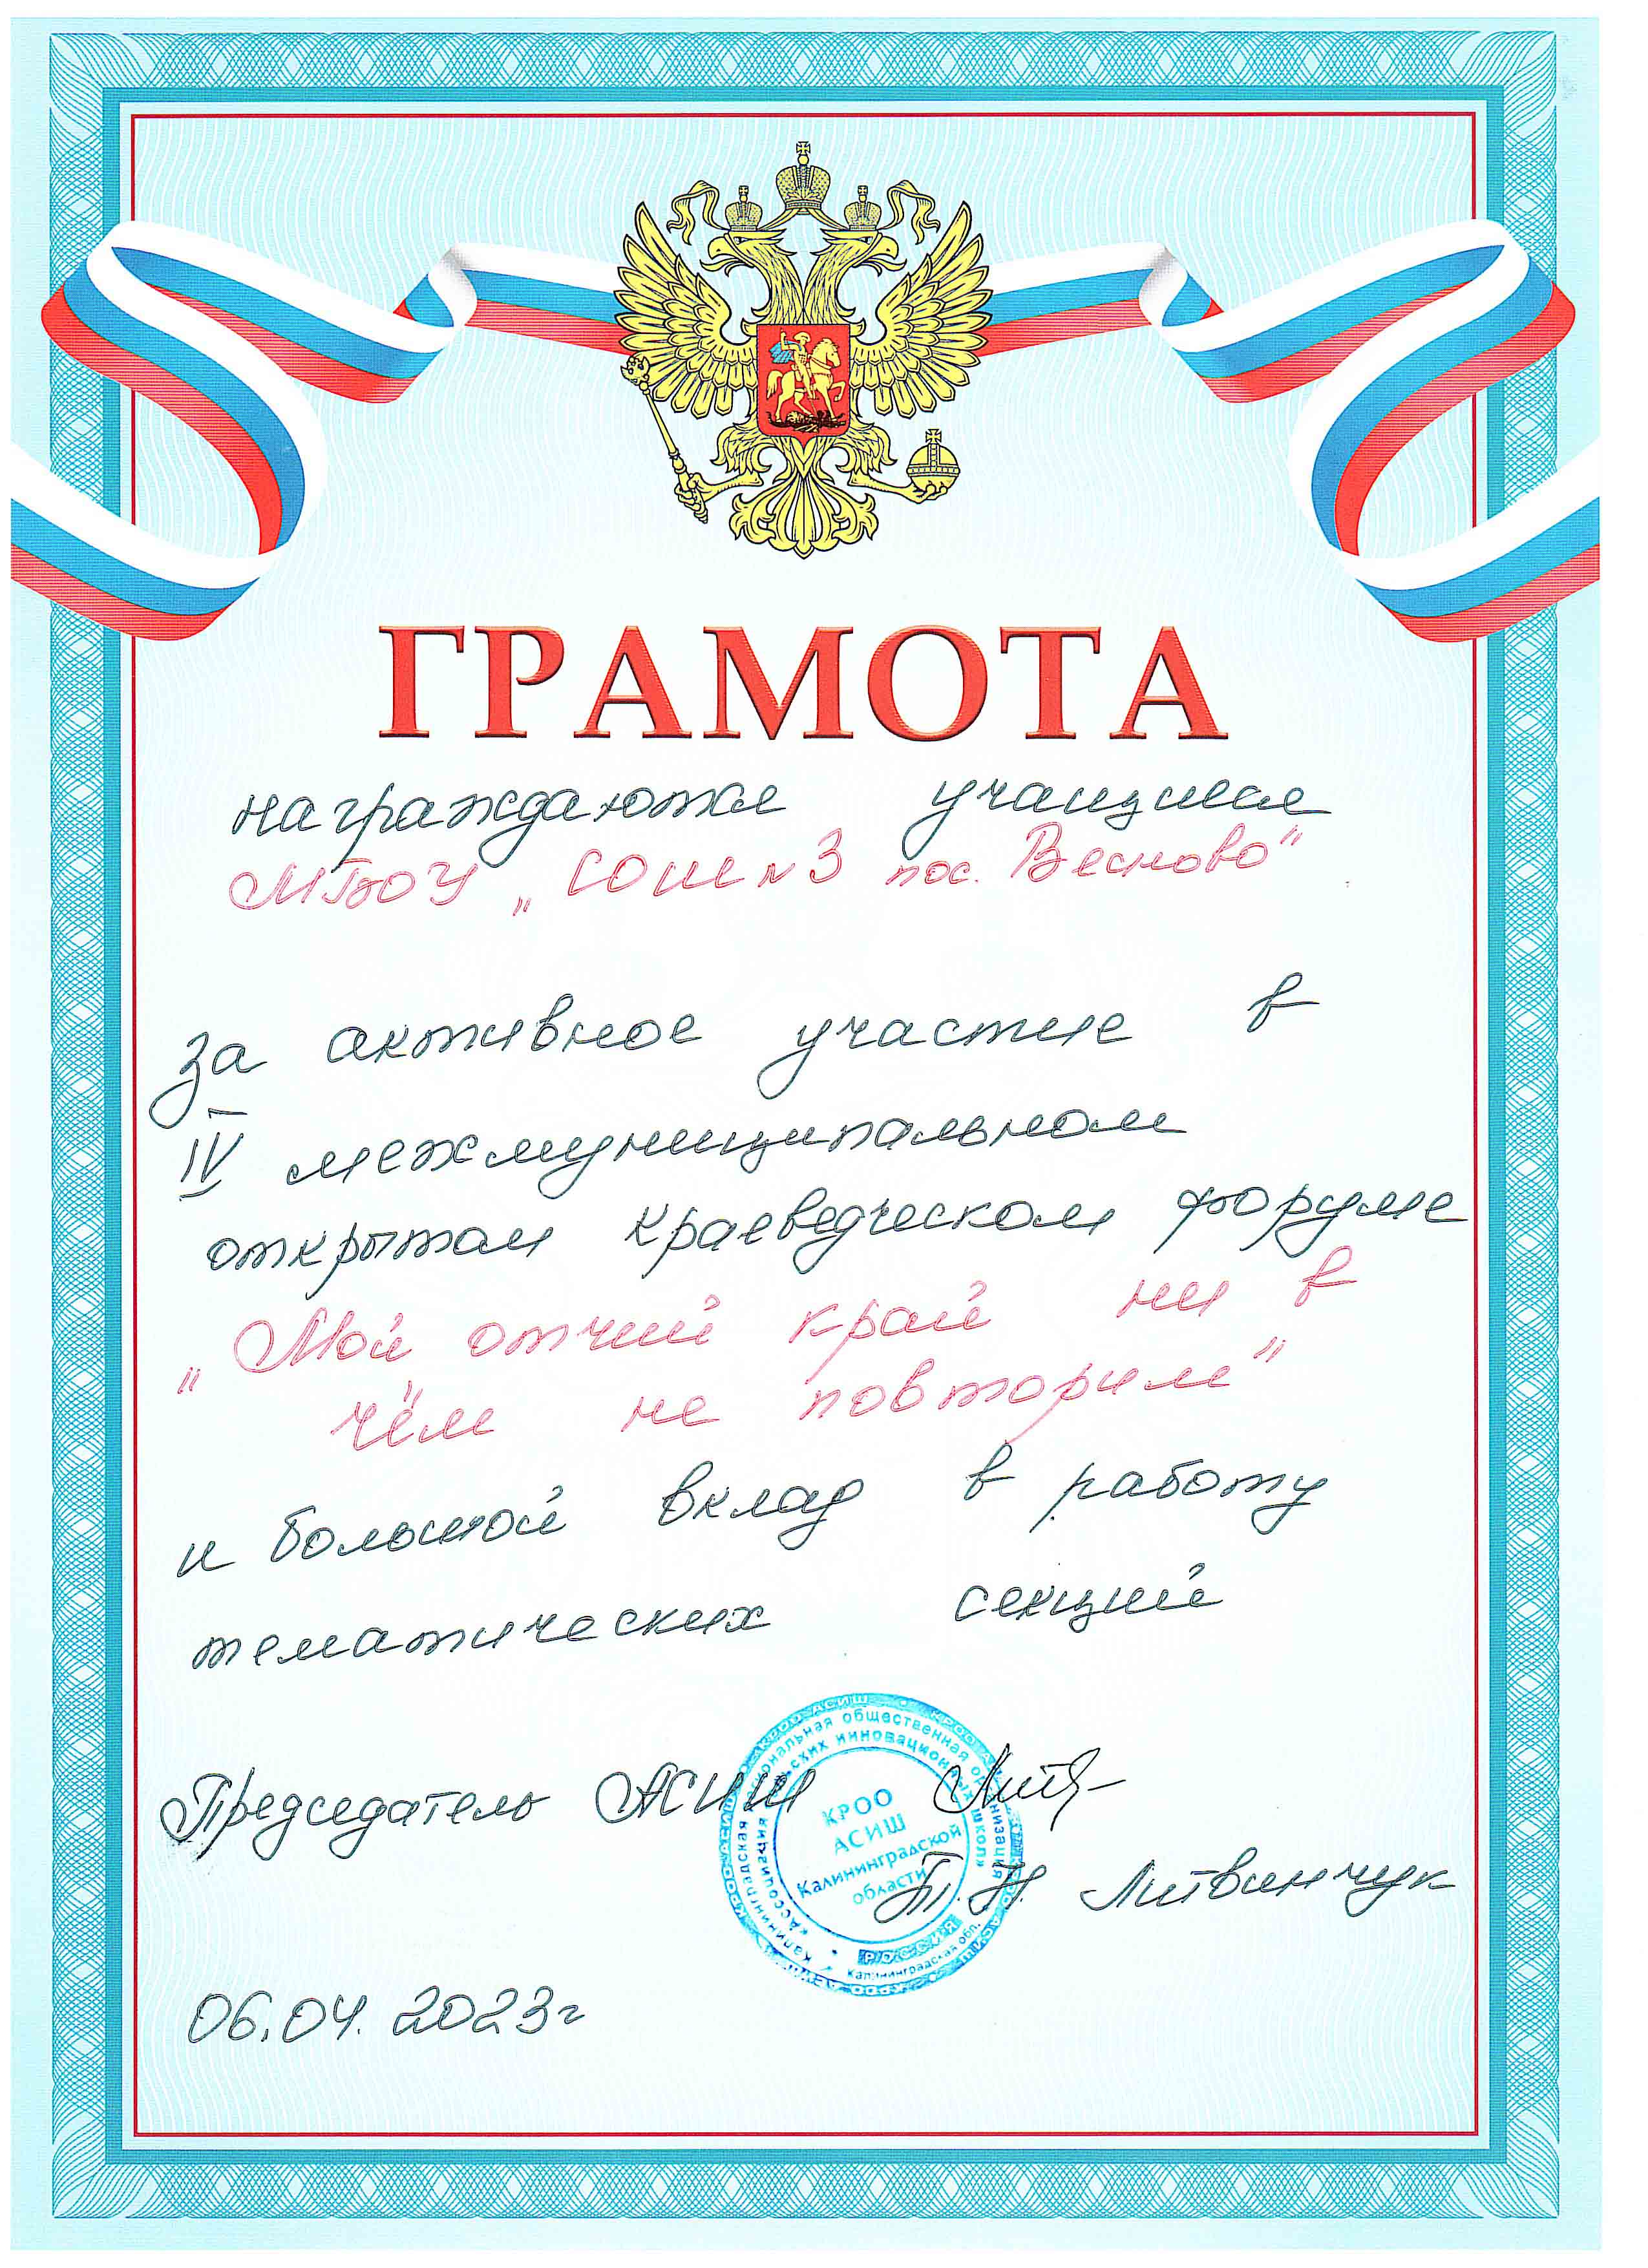 ГРАМОТА
награждаются учащиеся
МБОУ „СОШ № 3 пос. Весново"
за активное участие в
IV межмуниципальном
открытом краеведческом форуме
„Мой отчий край ни в
чём не повторим"
и большой вклад в работу
тематических секций
Председатель АСИШ
Т.Н. Литвинчук
06.04.2023г
КРОО
АСИШ
Калининградской
области
Калининградская региональная общественная организация
«Ассоциация сельских инновационных школ»
РОССИЯ
Калининградская обл.